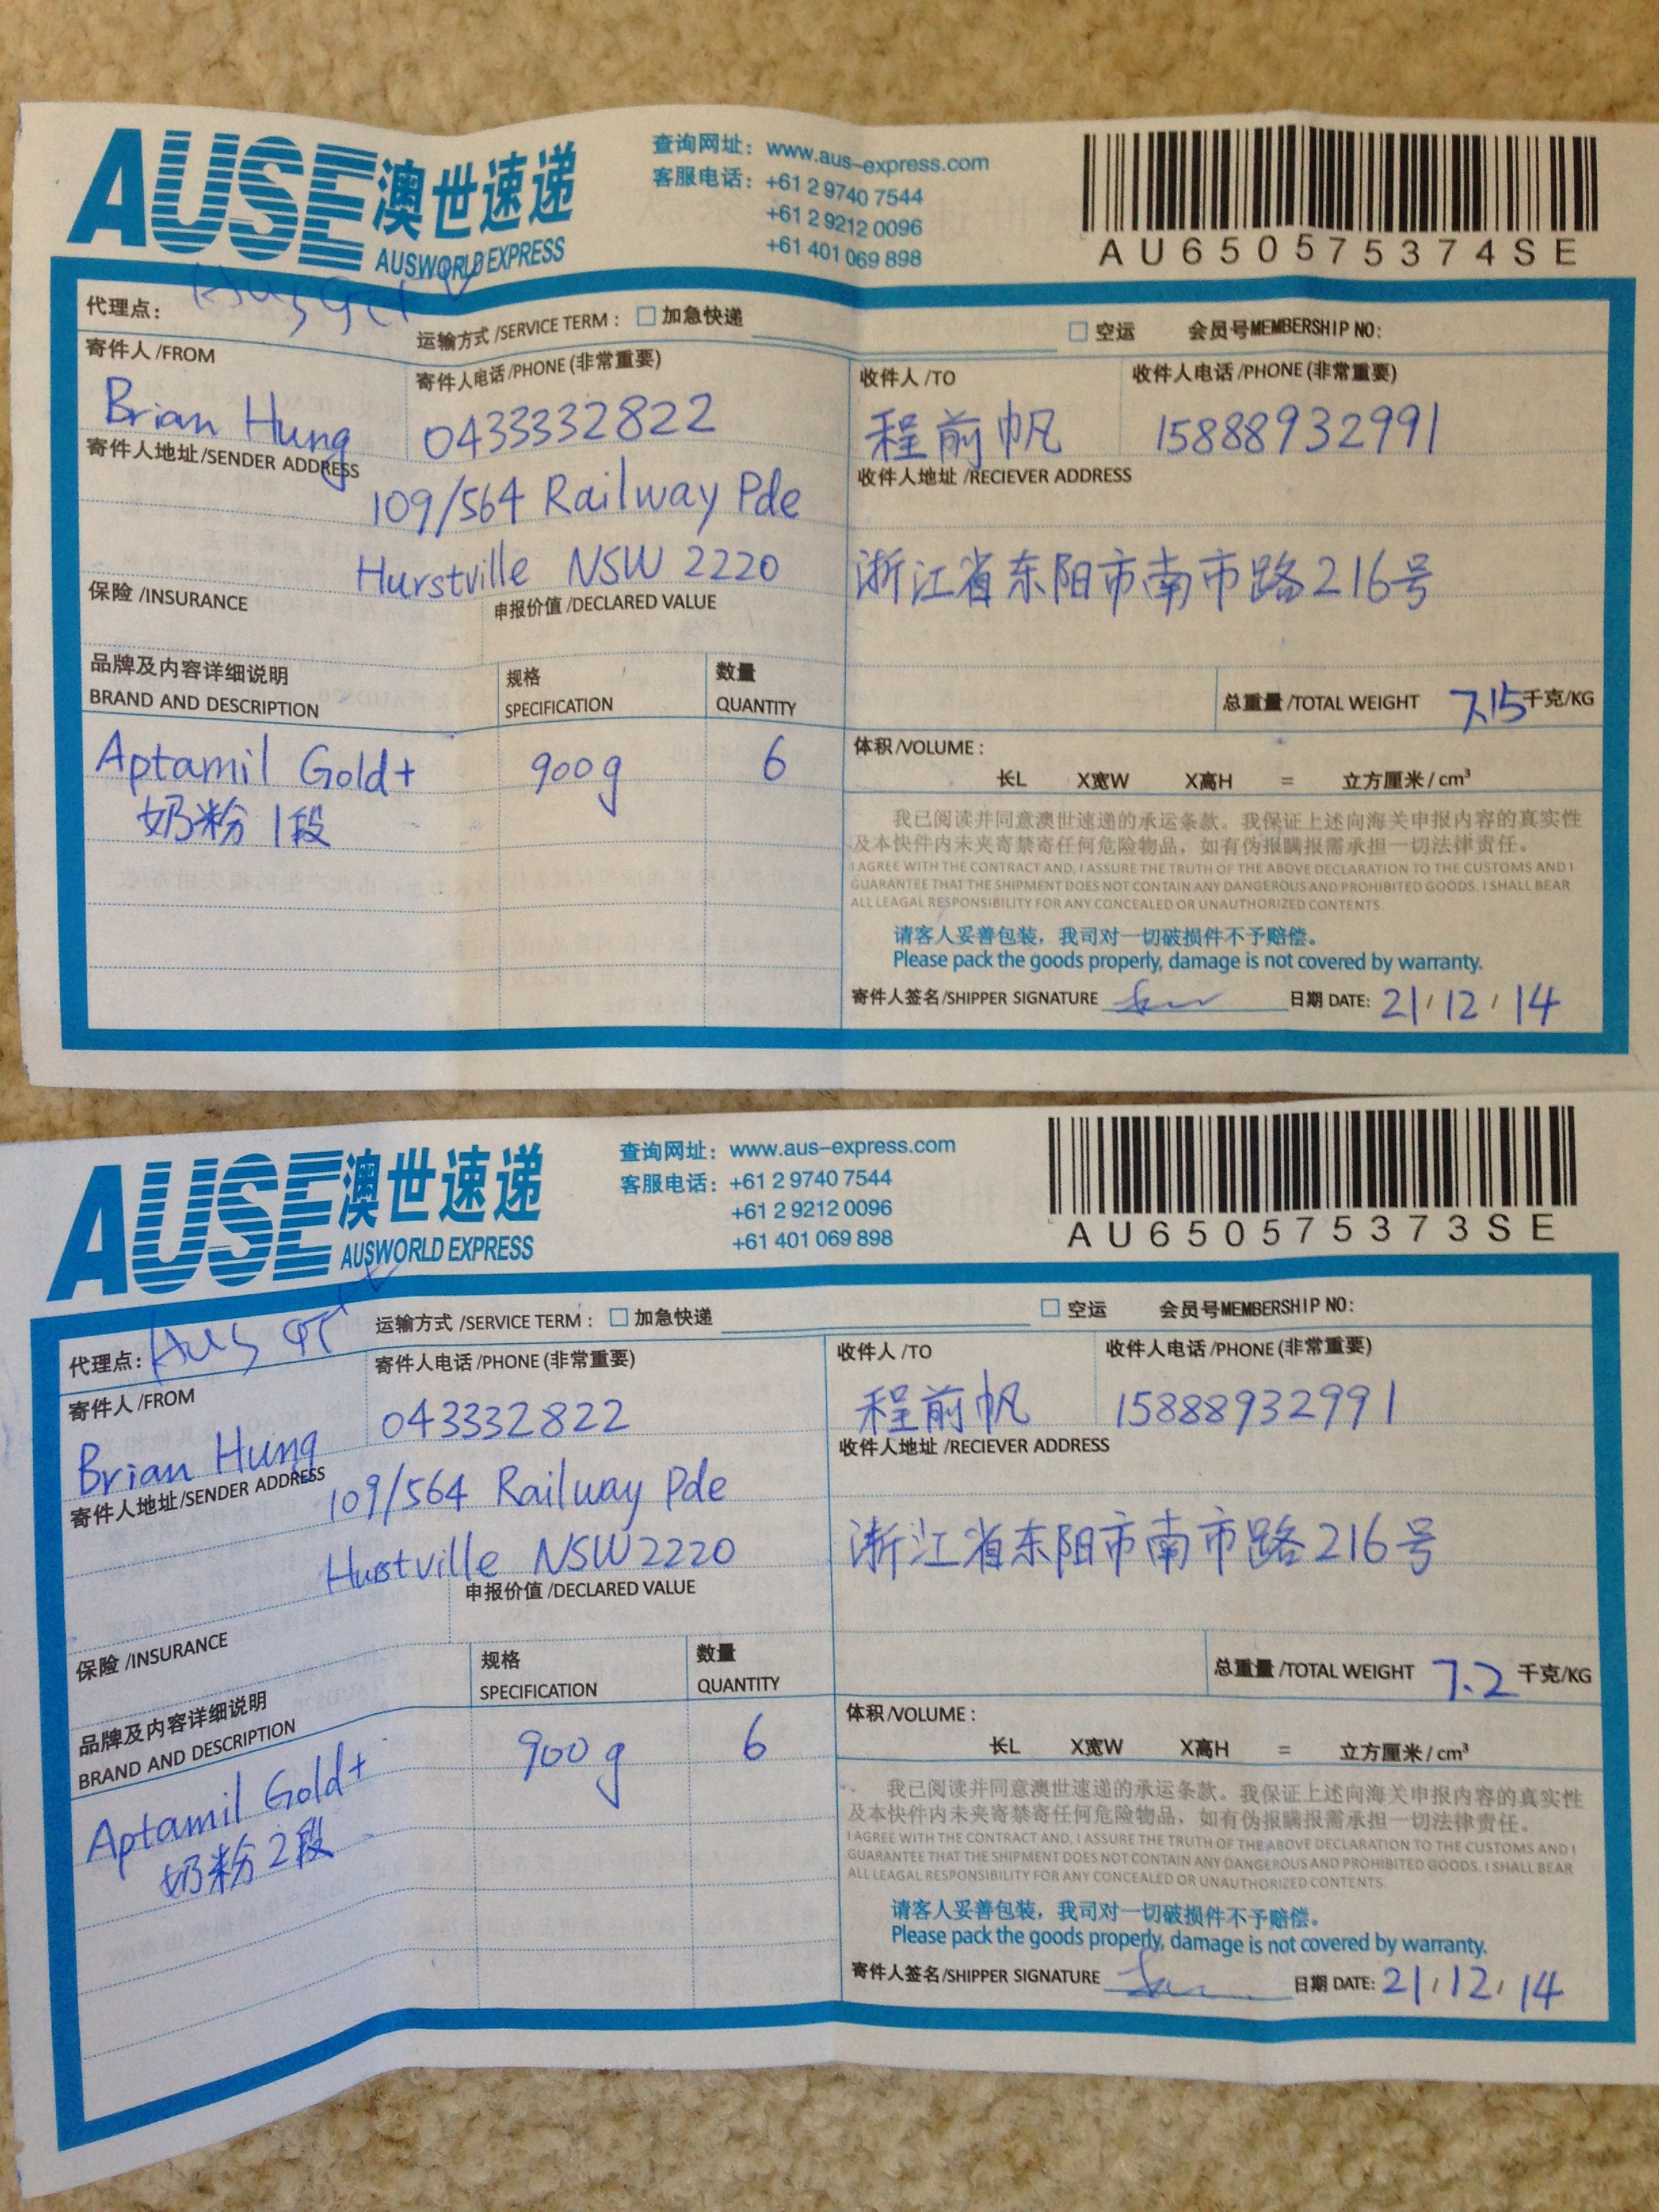 AUSE 澳世速递
AUSWORLD EXPRESS
查询网址：www.aus-express.com
客服电话：+61 2 9740 7544
+61 2 9212 0096
+61 401 069 898
AU650575374SE
代理点：
运输方式/SERVICE TERM： □ 加急快递
□ 空运 会员号MEMBERSHIP NO:
寄件人/FROM
Brian Hung
寄件人电话/PHONE (非常重要)
0433332822
寄件人地址/SENDER ADDRESS
109/564 Railway Pde
Hurstville NSW 2220
收件人/TO
程前帆
收件人电话/PHONE (非常重要)
15888932991
收件人地址/RECIEVER ADDRESS
浙江省东阳市南市路216号
保险/INSURANCE
申报价值/DECLARED VALUE
品牌及内容详细说明
BRAND AND DESCRIPTION
规格
SPECIFICATION
数量
QUANTITY
Aptamil Gold+ 900g 6
奶粉1段
总重量/TOTAL WEIGHT 7.15 千克/KG
体积/VOLUME：
长L X宽W X高H = 立方厘米/cm³
我已阅读并同意澳世速递的承运条款。我保证上述向海关申报内容的真实性
及本快件内未夹寄禁寄任何危险物品，如有伪报瞒报需承担一切法律责任。
I AGREE WITH THE CONTRACT AND, I ASSURE THE TRUTH OF THE ABOVE DECLARATION TO THE CUSTOMS AND I
GUARANTEE THAT THE SHIPMENT DOES NOT CONTAIN ANY DANGEROUS AND PROHIBITED GOODS. I SHALL BEAR
ALL LEAGAL RESPONSIBILITY FOR ANY CONCEALED OR UNAUTHORIZED CONTENTS.
请客人妥善包装，我司对一切破损件不予赔偿。
Please pack the goods properly, damage is not covered by warranty.
寄件人签名/SHIPPER SIGNATURE 日期 DATE: 21/12/14
AUSE 澳世速递
AUSWORLD EXPRESS
查询网址：www.aus-express.com
客服电话：+61 2 9740 7544
+61 2 9212 0096
+61 401 069 898
AU650575373SE
代理点：
运输方式/SERVICE TERM： □ 加急快递
□ 空运 会员号MEMBERSHIP NO:
寄件人/FROM
Brian Hung
寄件人电话/PHONE (非常重要)
043332822
寄件人地址/SENDER ADDRESS
109/564 Railway Pde
Hurstville NSW 2220
收件人/TO
程前帆
收件人电话/PHONE (非常重要)
15888932991
收件人地址/RECIEVER ADDRESS
浙江省东阳市南市路216号
保险/INSURANCE
申报价值/DECLARED VALUE
品牌及内容详细说明
BRAND AND DESCRIPTION
规格
SPECIFICATION
数量
QUANTITY
Aptamil Gold+ 900g 6
奶粉2段
总重量/TOTAL WEIGHT 7.2 千克/KG
体积/VOLUME：
长L X宽W X高H = 立方厘米/cm³
我已阅读并同意澳世速递的承运条款。我保证上述向海关申报内容的真实性
及本快件内未夹寄禁寄任何危险物品，如有伪报瞒报需承担一切法律责任。
I AGREE WITH THE CONTRACT AND, I ASSURE THE TRUTH OF THE ABOVE DECLARATION TO THE CUSTOMS AND I
GUARANTEE THAT THE SHIPMENT DOES NOT CONTAIN ANY DANGEROUS AND PROHIBITED GOODS. I SHALL BEAR
ALL LEAGAL RESPONSIBILITY FOR ANY CONCEALED OR UNAUTHORIZED CONTENTS.
请客人妥善包装，我司对一切破损件不予赔偿。
Please pack the goods properly, damage is not covered by warranty.
寄件人签名/SHIPPER SIGNATURE 日期 DATE: 21/12/14